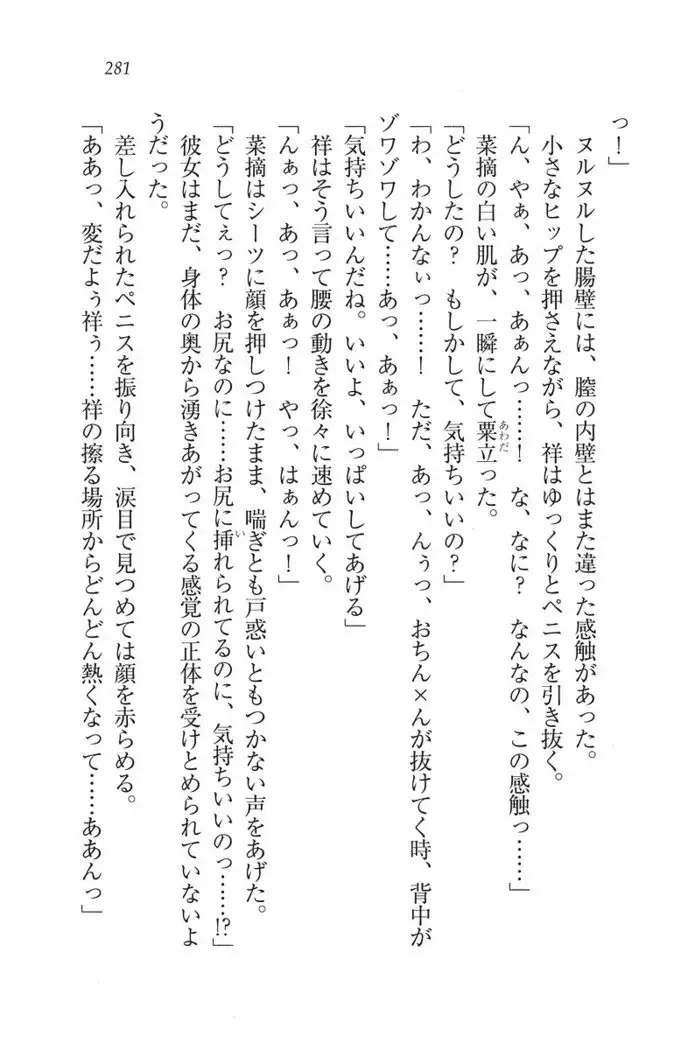 281
っ！」
ヌルヌルした腸壁には、膣の内壁とはまた違った感触があった。
小さなヒップを押さえながら、祥はゆっくりとペニスを引き抜く。
「ん、やぁ、あっ、あぁんっ……！　な、なに？　なんなの、この感触っ……」
菜摘の白い肌が、一瞬にして粟立った。
「どうしたの？　もしかして、気持ちいいの？」
「わ、わかんなぃっ……！　ただ、あっ、んぅっ、おちん×んが抜けてく時、背中が
ゾワゾワして……あっ、あぁっ！」
「気持ちいいんだね。いいよ、いっぱいしてあげる」
祥はそう言って腰の動きを徐々に速めていく。
「んぁっ、あっ、あぁっ！　やっ、はぁんっ！」
菜摘はシーツに顔を押しつけたまま、喘ぎとも戸惑いともつかない声をあげた。
「どうしてぇっ？　お尻なのに……お尻に挿れられてるのに、気持ちいいのっ……!?」
彼女はまだ、身体の奥から湧きあがってくる感覚の正体を受けとめられていないよ
うだった。
差し入れられたペニスを振り向き、涙目で見つめては顔を赤らめる。
「ああっ、変だよぅ祥ぅ……祥の擦る場所からどんどん熱くなって……ああんっ」